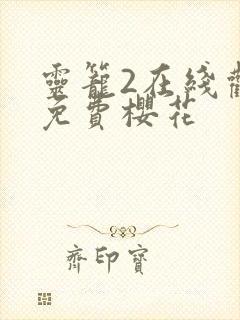 靈籠2在綫
免費櫻花
齊印寶